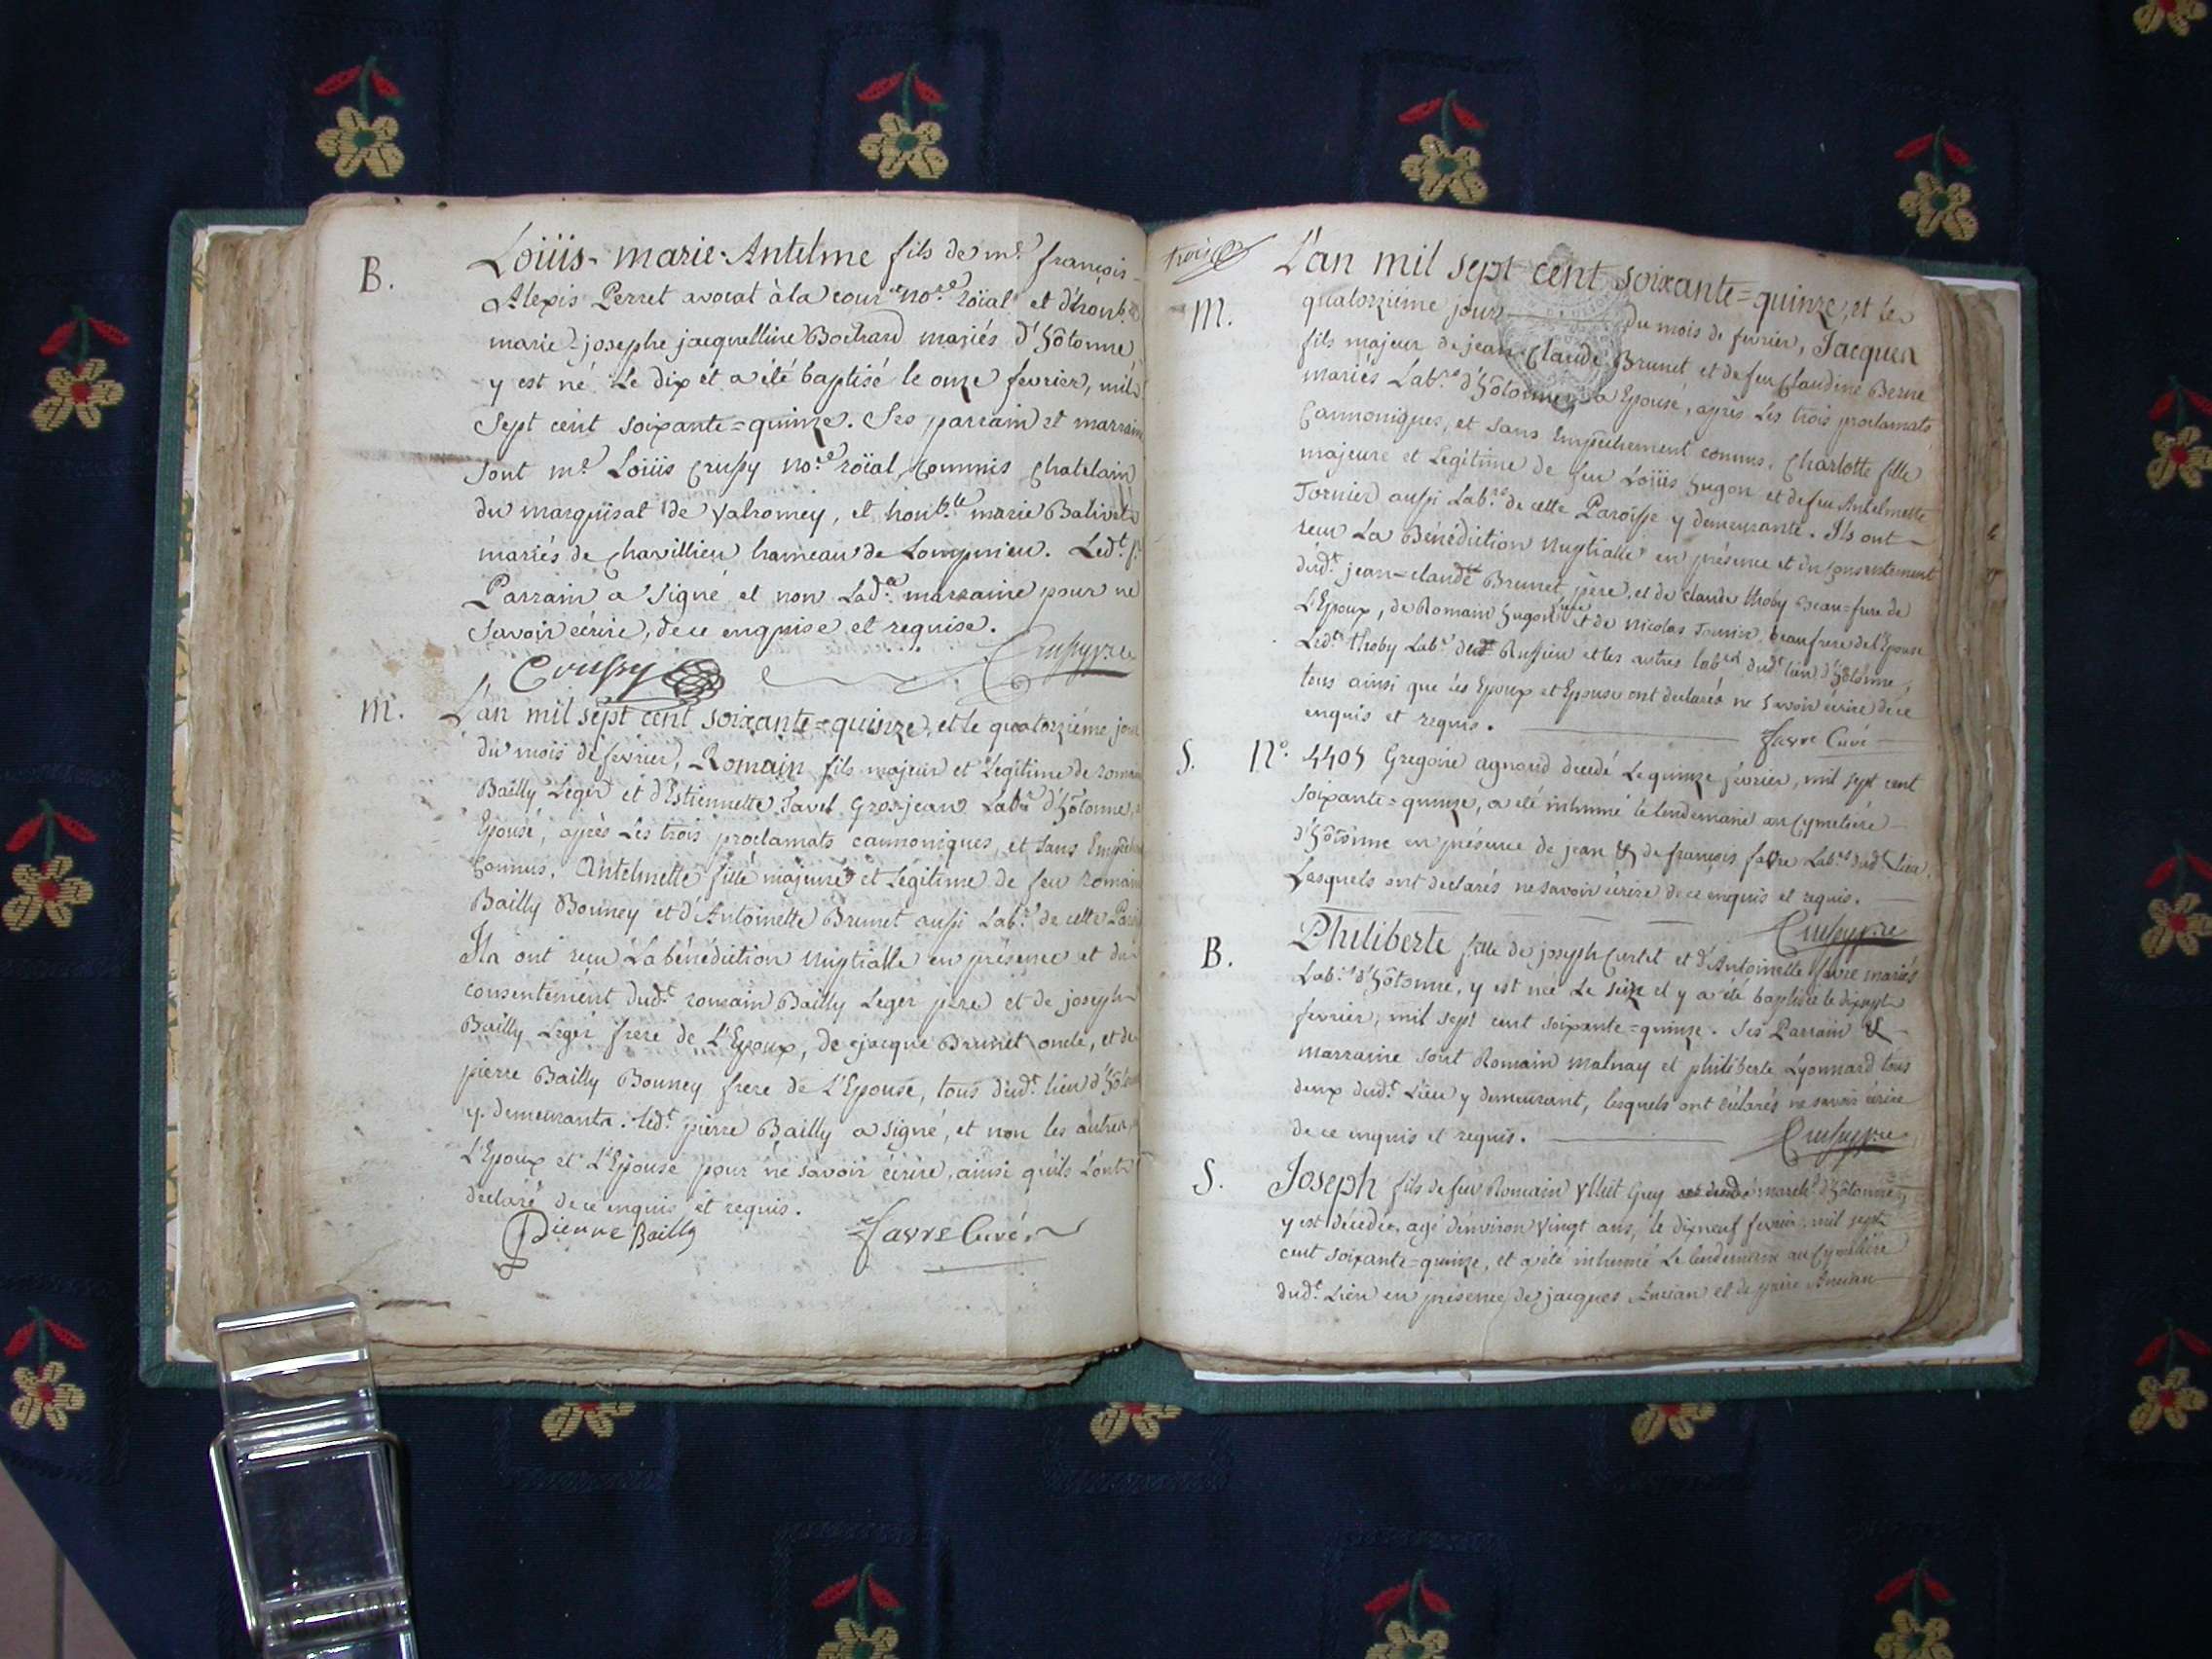 B. Loüis-marie-Antelme fils de mr. françois-
Alexis Perret avocat à la cour nore. roïal et d'honble.
marie-josephe jacquelline Bochard mariés d'hôtonne,
y est né Le dix et a été baptisé le onze fevrier, mil
sept cent soixante=quinze. Ses parrain et marraine
sont mr. Loüis Crussy nore. roïal, commis chatelain
du marquisat de Valromey, et honble. marie Balivet
mariés de Chavillieu hameau de Lompnieu. Ledt. sr.
Parrain a signé et non Lade. marraine pour ne
savoir écrire, de ce enquise et requise.
Crussy
m. L'an mil sept cent soixante=quinze, et le quatorziéme jour
du mois de fevrier, Romain fils majeur et Legitime de romain
Bailly Leger et d'Estiennette Favel Grosjean Labrs. d'hôtonne, a
Epousé, après Les trois proclamats cannoniques, et sans Empêchement
Connus, Antelmette fille majeure et Légitime de feu romain
Bailly Bonney et d'Antoinette Brunet aussi Labrs. de cette Paroisse
Ils ont reçu La bénédiction nuptialle en présence et du
consentement dudt. romain Bailly Leger père et de joseph
Bailly Leger frere de L'Epoux, de jacque Brunet oncle, et de
pierre Bailly Bonney frere de L'Epouse, tous dudt. lieu d'hôtonne
y demeurants. ledt. pierre Bailly a signé, et non les autres, ni
L'Epoux et L'Epouse pour ne savoir écrire, ainsi qu'ils L'ont
declaré de ce enquis et requis.
Pierre Bailly favre Curé
trois
L'an mil sept cent soixante=quinze, et le
m. quatorziéme jour du mois de fevrier, Jacques
fils majeur de jean-Claude Brunet et de feu Claudine Berne
mariés Labrs. d'hôtonne, a Epousé, après Les trois proclamats
Cannoniques, et sans Empêchement connus, Charlotte fille
majeure et Legitime de feu Loüis hugon et de feu Antelmette
Tornier aussi Labrs. de cette Paroisse y demeurante. Ils ont
reçu La Bénédiction Nuptialle en présence et du consentement
dudt. jean-claude Brunet, père, et de claude thoby beau=frere de
L'Epoux, de Romain hugon et de Nicolas Tornier beau frere de l'Epouse
Ledt. thoby Labr. de Ruffieu et les autres labrs. dudt. lieu d'hôtonne,
tous ainsi que les Epoux et Epouse ont declarés ne savoir écrire de ce
enquis et requis.
favre Curé
S. No. 4405 Gregoire agnoud decedé Le quinze fevrier, mil sept cent
soixante=quinze, a été inhumé le lendemain au Cymetiére
d'hôtonne en présence de jean & de françois favre Labrs. dudt. Lieu.
Lesquels ont declarés ne savoir écrire de ce enquis et requis.
B. Philiberte fille de joseph Curtet et d'Antoinette favre mariés
Labrs. d'hôtonne, y est née Le seize et y a été baptisée le dixsept
fevrier, mil sept cent soixante=quinze. Ses Parrain &
marraine sont Romain malnay et philiberte Lyonnard tous
deux dudt. Lieu y demeurant, lesquels ont déclarés ne savoir écrire
de ce enquis et requis.
S. Joseph fils de feu Romain Guy march. d'hôtonne,
y est décédé, agé d'environ vingt ans, le dixneuf fevrier, mil sept
cent soixante=quinze, et a été inhumé Le lendemain au Cymetiére
dudt. Lieu en présence de jacques Ancian et de pierre Ancian